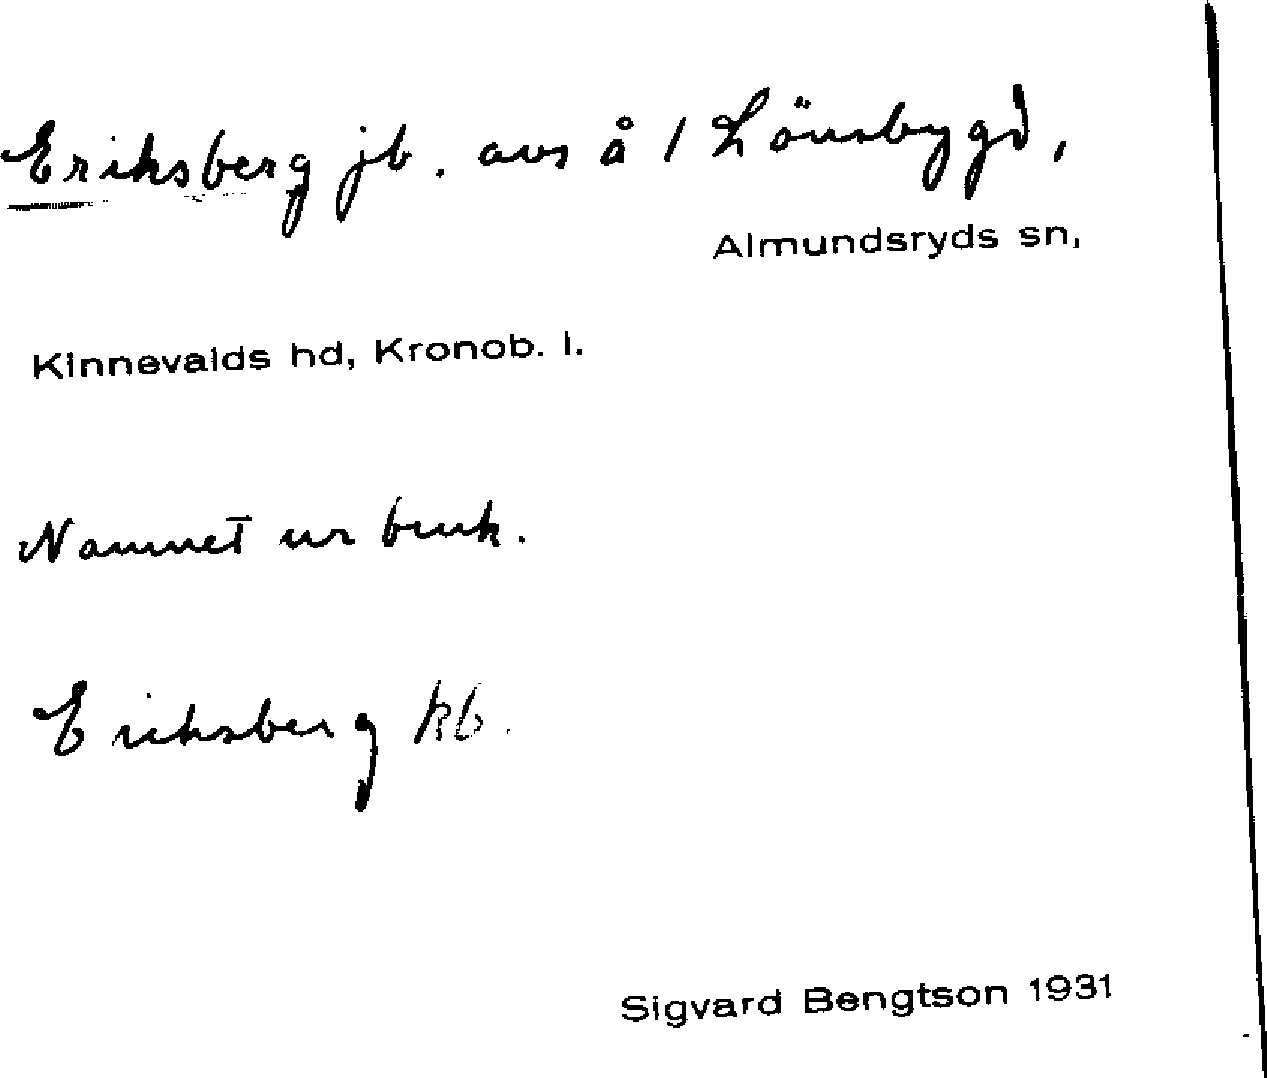 Eriksberg jb. avs å 1 Lönsbygd,
Almundsryds sn,
Kinnevalds hd, Kronob. l.
Namnet ur bruk.
Eriksberg kb.
Sigvard Bengtson 1931